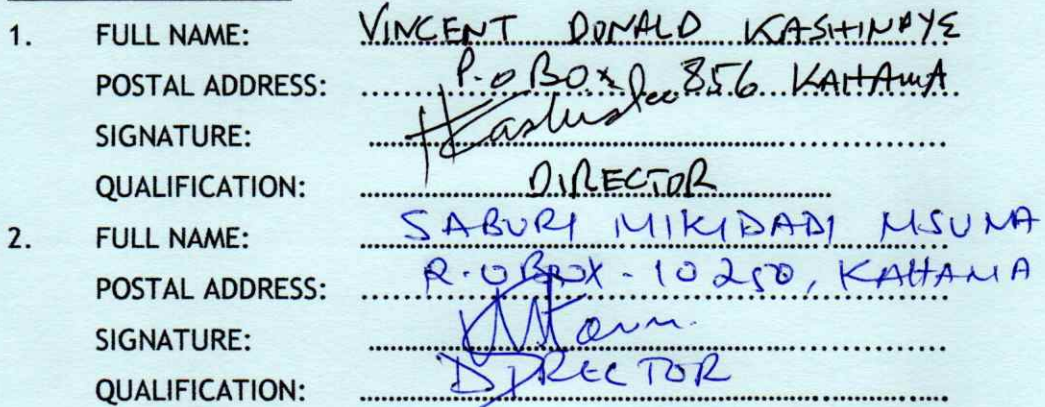 1. FULL NAME: VINCENT DONALD KASHINDYE
POSTAL ADDRESS: P.O BOX 856 KAHAMA
SIGNATURE:
QUALIFICATION: DIRECTOR
2. FULL NAME: SABURI MIKIDADI MSUMA
POSTAL ADDRESS: P.O BOX - 10250, KAHAMA
SIGNATURE:
QUALIFICATION: DIRECTOR